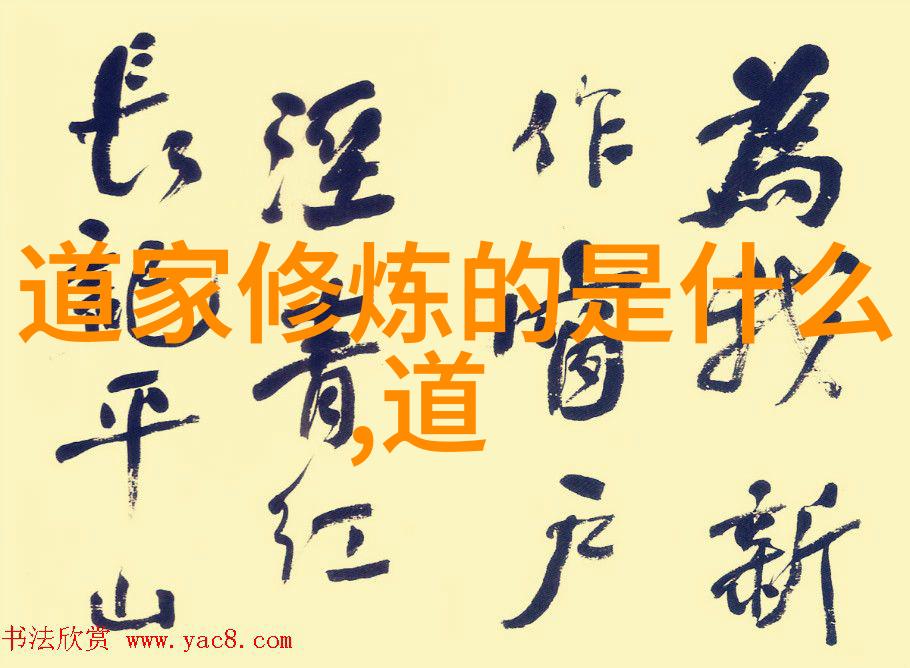 道家修炼的是什么
,道
為我新
作窗戶
淫青紅
長記平山
书法欣赏 www.yac8.com